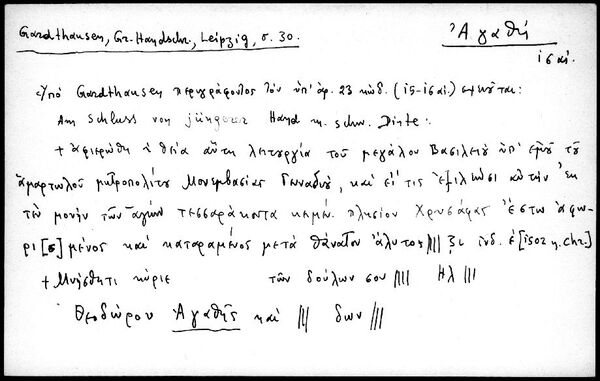 Gardthausen, Gr. Handschr., Leipzig, σ. 30.
Ἀγαθή
ις αἰ.
Ὑπὸ Gardthausen περιγράφοντος τὸν ὑπ' ἀρ. 23 κώδ. (ις-ις αἰ.)
Am Schluss von jüngerer Hand m. schw. Dinte:
+ ἀφιερώθη ἡ θεία αὕτη λειτουργία τοῦ μεγάλου Βασιλείου ὑπ' ἐμοῦ τοῦ
ἁμαρτωλοῦ μητροπολίτου Μονεμβασίας, καὶ εἴ τις αὐτὴν ἐκ
τὴν μονὴν τῶν ἁγίων τεσσαράκοντα κειμέν. πλησίον Χρυσάφας ἔστω ἀφω-
ρι[σ]μένος καὶ καταραμένος μετὰ θάνατον ἄλυτος ||| ἰνδ. ἐ [1502 n. Chr.]
+ Μνήσθητι κύριε τῶν δούλων σου |||| Ηλ |||
Θεοδώρου Ἀγαθῆς καὶ ||| δων |||